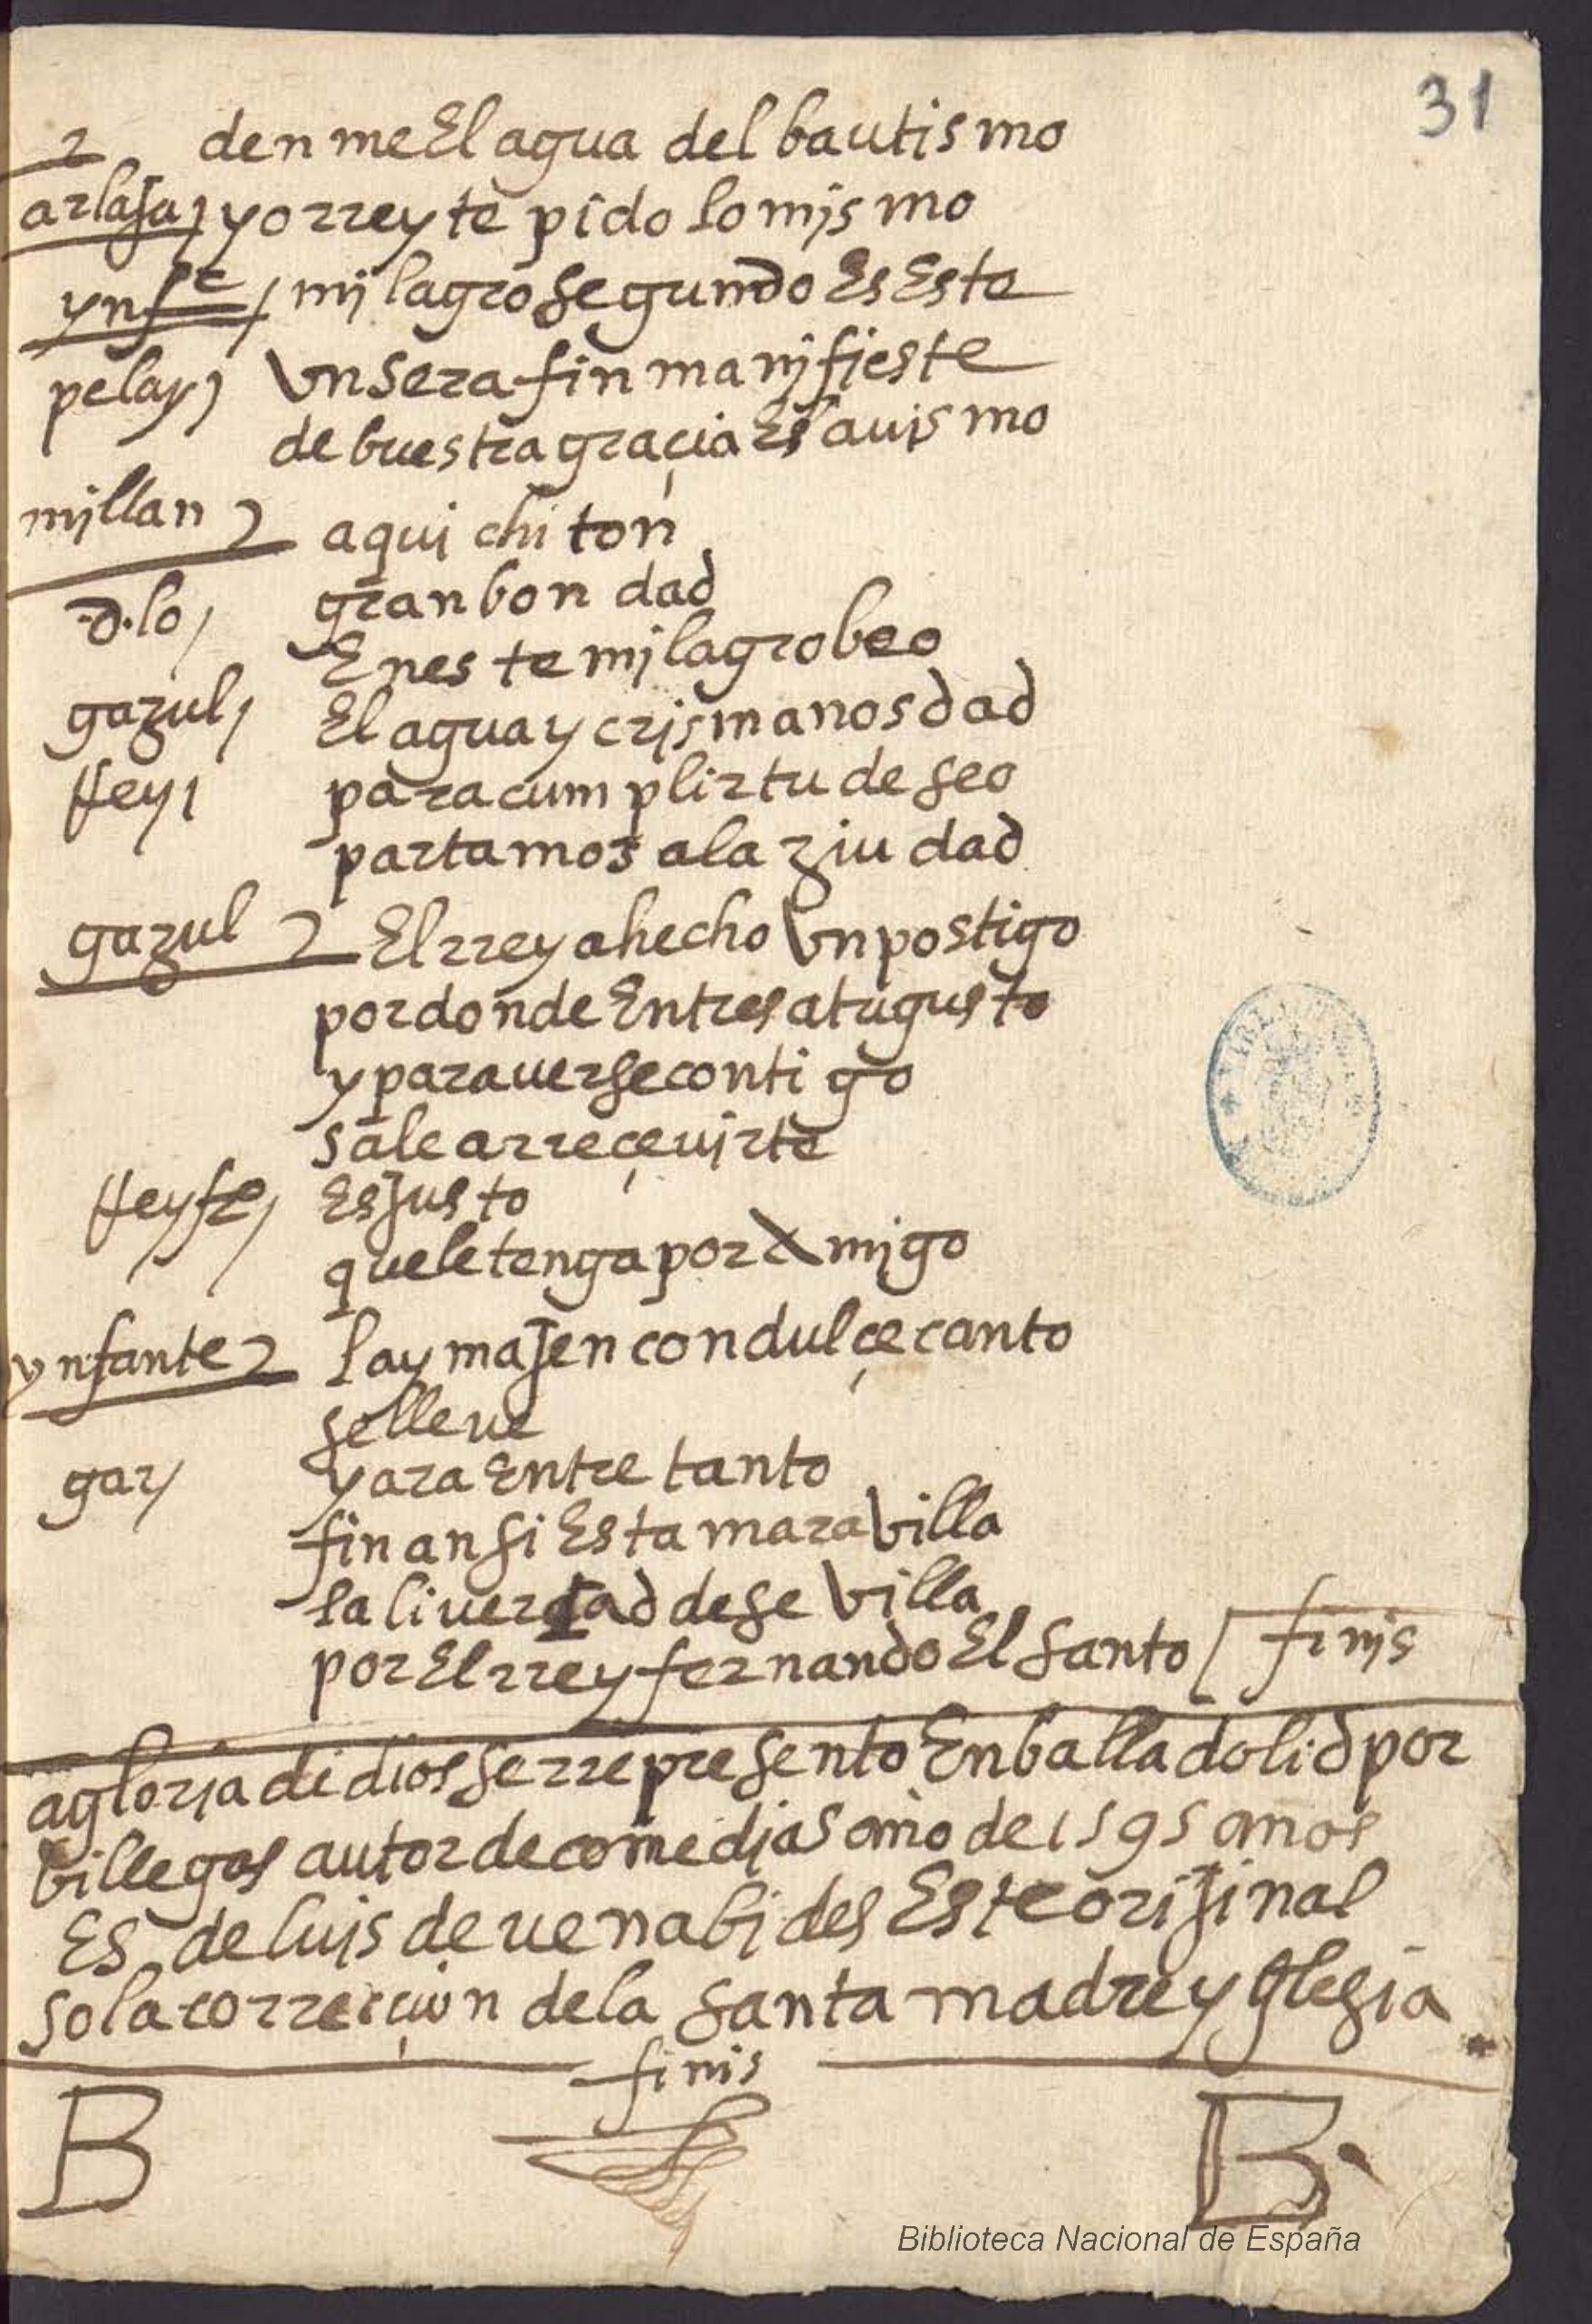 31
2 denme El agua del bautismo
arlaja) yo rrey te pido lo mismo
ynfte / milagro segundo Es Este
pelay) Vn serafin manifieste
de buestra graçia El auismo
millan 2 aqui chiton
d.lo / gran bondad
En este milagro beo
gazul / El agua y crisma nos dad
Rey / para cumplir tu deseo
partamos a la ziudad
gazul 2 El rrey a hecho Vn postigo
por donde Entres a tu gusto
y para verse contigo
sale a rreçeuirte
Rey fe / Es justo
que le tenga por Amigo
ynfante 2 la ymajen con dulçe canto
se lleue
gar / y ara Entre tanto
fin ansi Esta maraVilla
la liuertad de seVilla
por El rrey fernando El santo / finis
a gloria di dios se rrepresento En balladolid por
billegas autor de comedias año de 1595 años
Es de luis de uenabides Este orijinal
so la correicçion de la santa madre yglesia
finis
B B.
Biblioteca Nacional de España